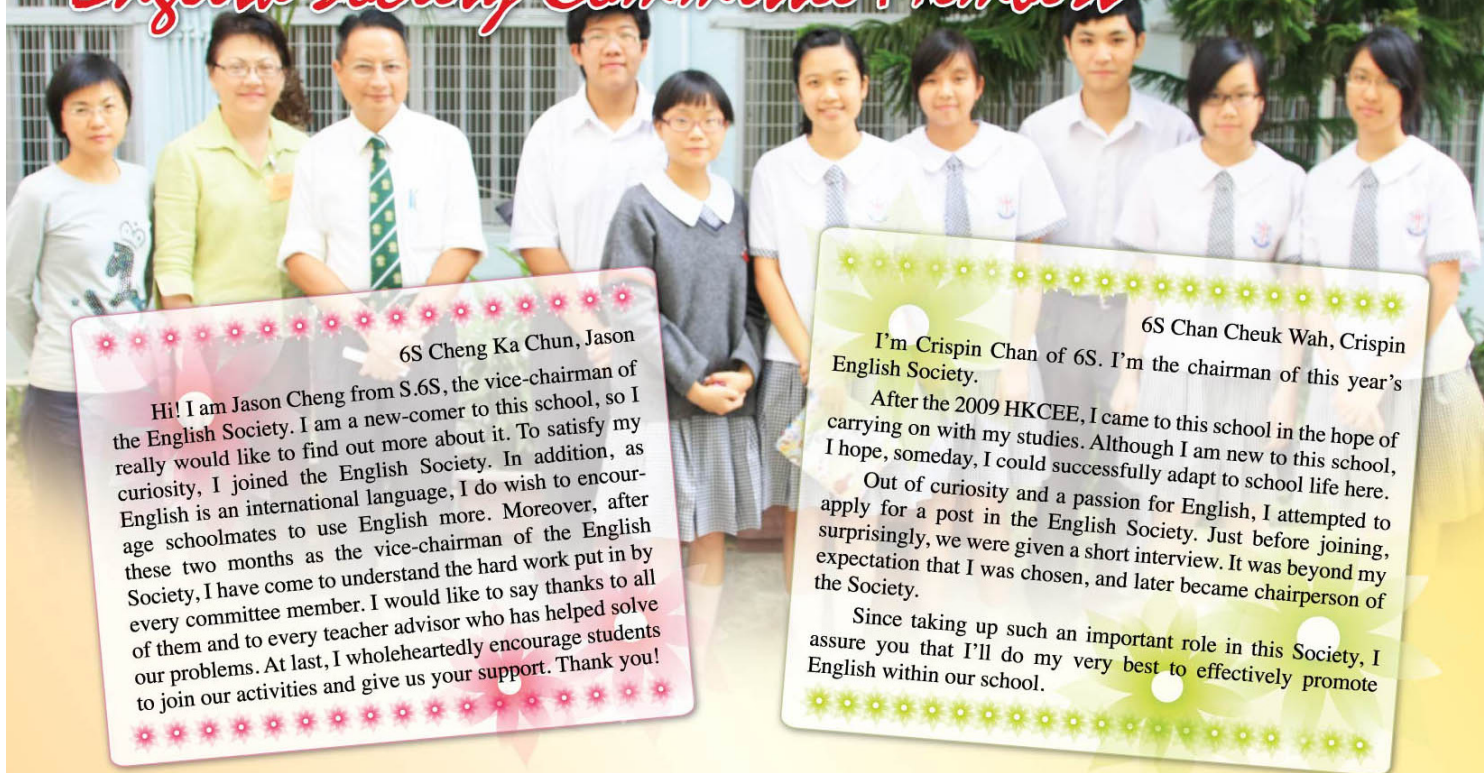 English Society Committee Members
6S Cheng Ka Chun, Jason
Hi! I am Jason Cheng from S.6S, the vice-chairman of
the English Society. I am a new-comer to this school, so I
really would like to find out more about it. To satisfy my
curiosity, I joined the English Society. In addition, as
English is an international language, I do wish to encour-
age schoolmates to use English more. Moreover, after
these two months as the vice-chairman of the English
Society, I have come to understand the hard work put in by
every committee member. I would like to say thanks to all
of them and to every teacher advisor who has helped solve
our problems. At last, I wholeheartedly encourage students
to join our activities and give us your support. Thank you!
6S Chan Cheuk Wah, Crispin
I'm Crispin Chan of 6S. I'm the chairman of this year's
English Society.
After the 2009 HKCEE, I came to this school in the hope of
carrying on with my studies. Although I am new to this school,
I hope, someday, I could successfully adapt to school life here.
Out of curiosity and a passion for English, I attempted to
apply for a post in the English Society. Just before joining,
surprisingly, we were given a short interview. It was beyond my
expectation that I was chosen, and later became chairperson of
the Society.
Since taking up such an important role in this Society, I
assure you that I'll do my very best to effectively promote
English within our school.